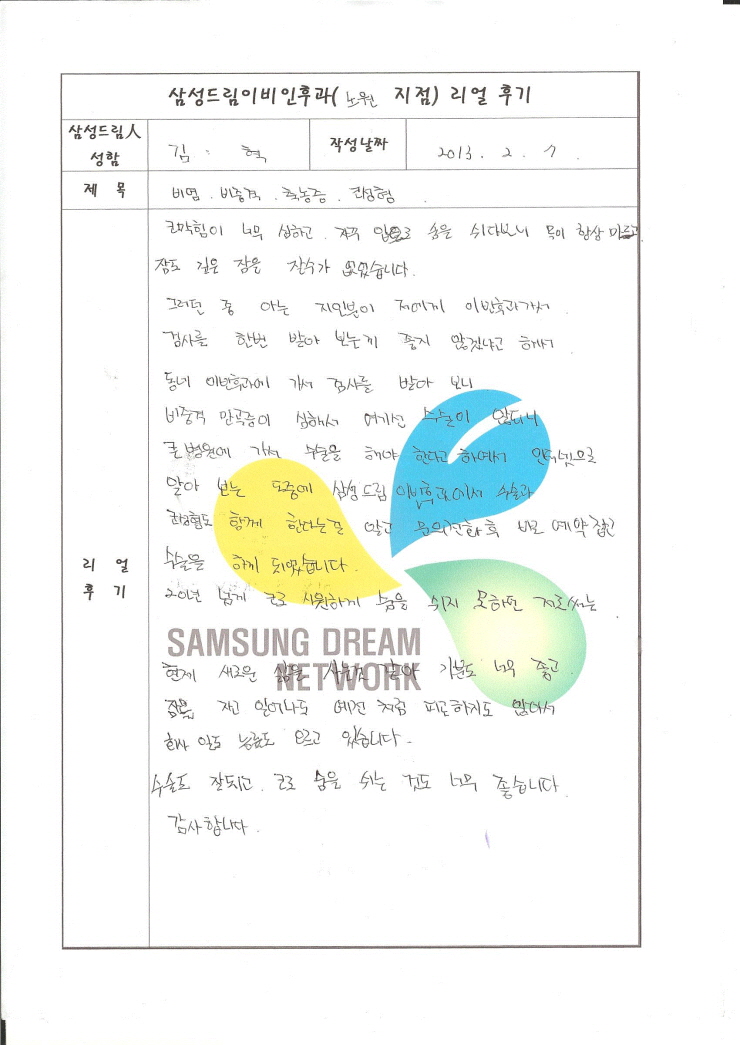 삼성드림이비인후과( 노원 지점) 리얼 후기
삼성드림人
성함
김 : 혁
작성날짜
2013. 2. 7.
제 목
비염. 비중격. 축농증. 코성형
리 얼
후 기
코막힘이 너무 심하고. 자꾸 입으로 숨을 쉬다보니 목이 항상 마르고
잠도 깊은 잠을 잘수가 없었습니다.
그러던 중 아는 지인분이 저에게 이비후과가서
검사를 한번 받아 보는게 좋지 않겠냐고 해서
동네 이빈후과에 가서 검사를 받아 보니
비중격 만곡증이 심해서 여기선 수술이 안되니
큰 병원에 가서 수술을 해야 한다고 하여서 인터넷으로
알아 보는 도중에 삼성드림 이빈후과에서 수술과
코성형도 함께 한다는걸 알고 문의전화 후 바로 예약 잡고
수술을 하게 되었습니다.
20년 넘게 코로 시원하게 숨을 쉬지 못하던 저로써는
SAMSUNG DREAM
NETWORK
현재 새로운 삶을 사는것 같아 기분도 너무 좋고.
잠을 자고 일어나도 예전 처럼 피곤하지도 않아서
회사 일도 능률도 오르고 있습니다.
수술도 잘되고. 코로 숨을 쉬는 것도 너무 좋습니다.
감사합니다.